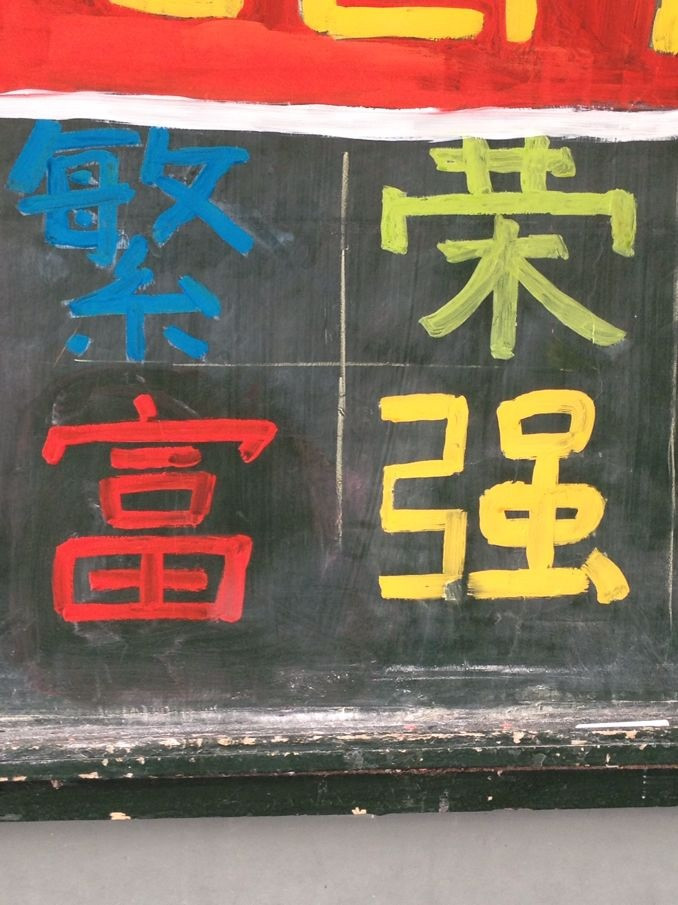 繁荣
富强